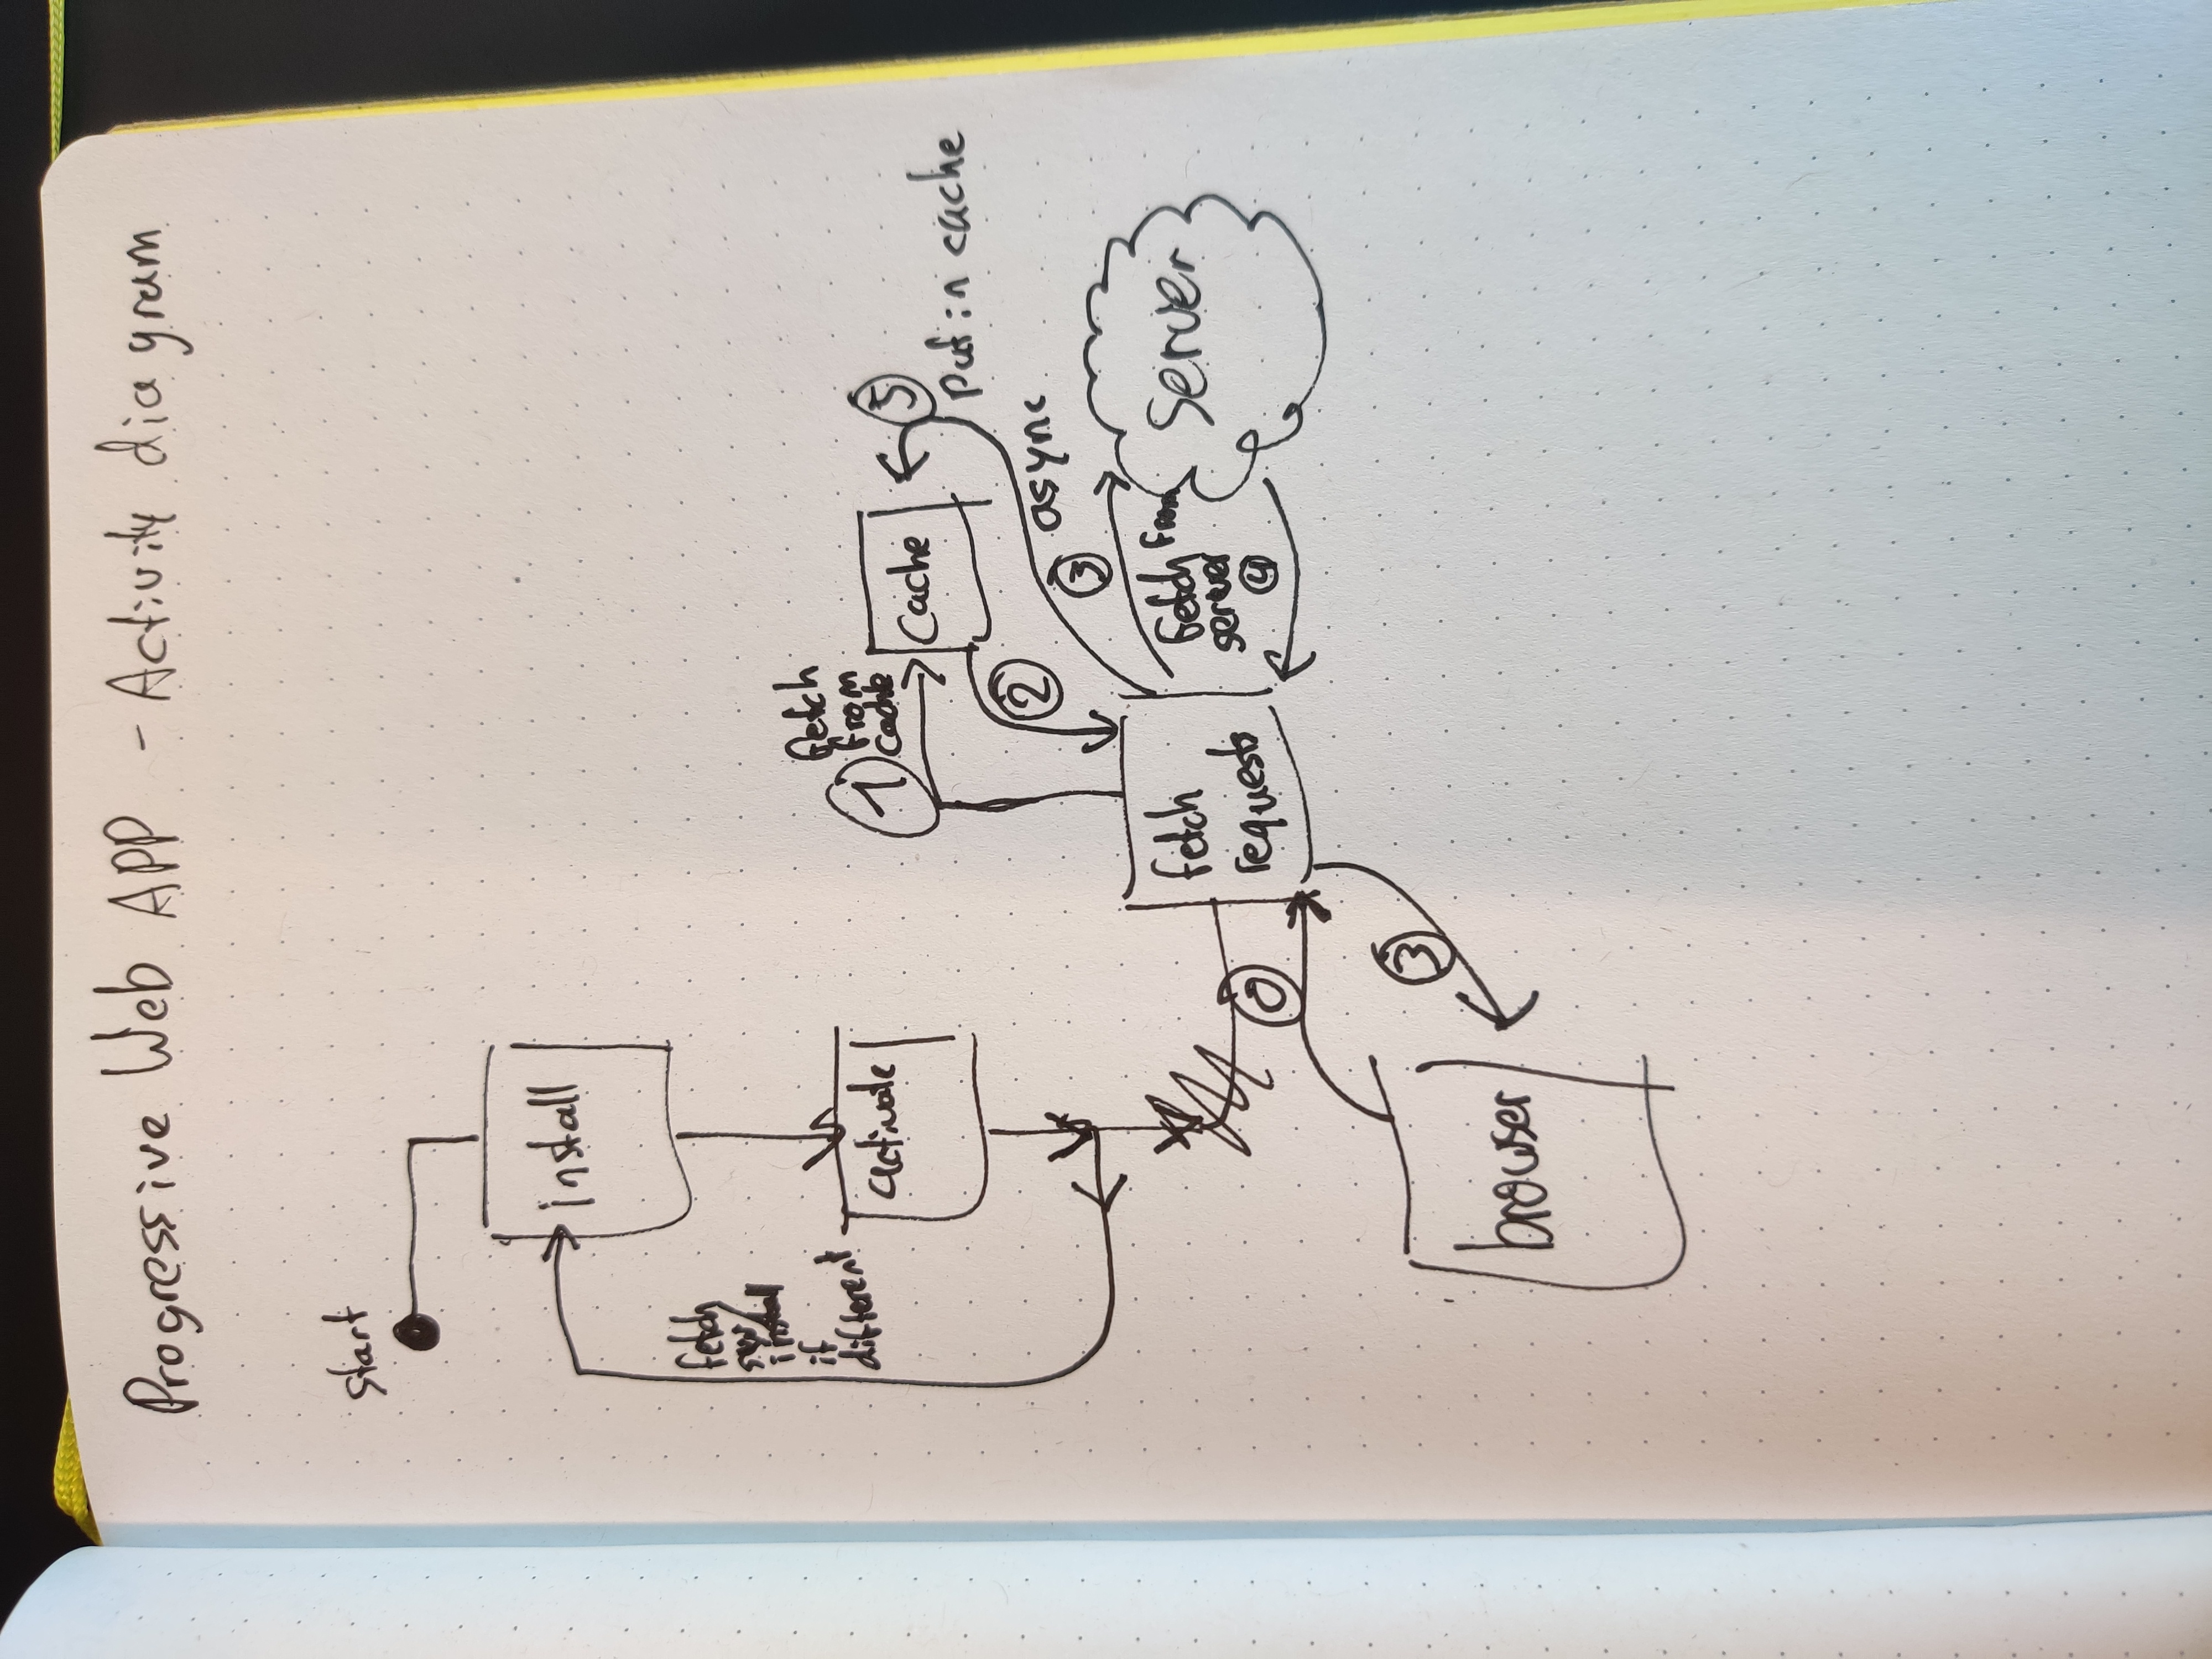 Progressive Web APP - Activity diagram
start
install
fetch
install
if
different
activate
1
fetch
from
cache
Cache
5
Put in cache
2
async
3
fetch
requests
fetch from
server
4
Server
0
3
browser